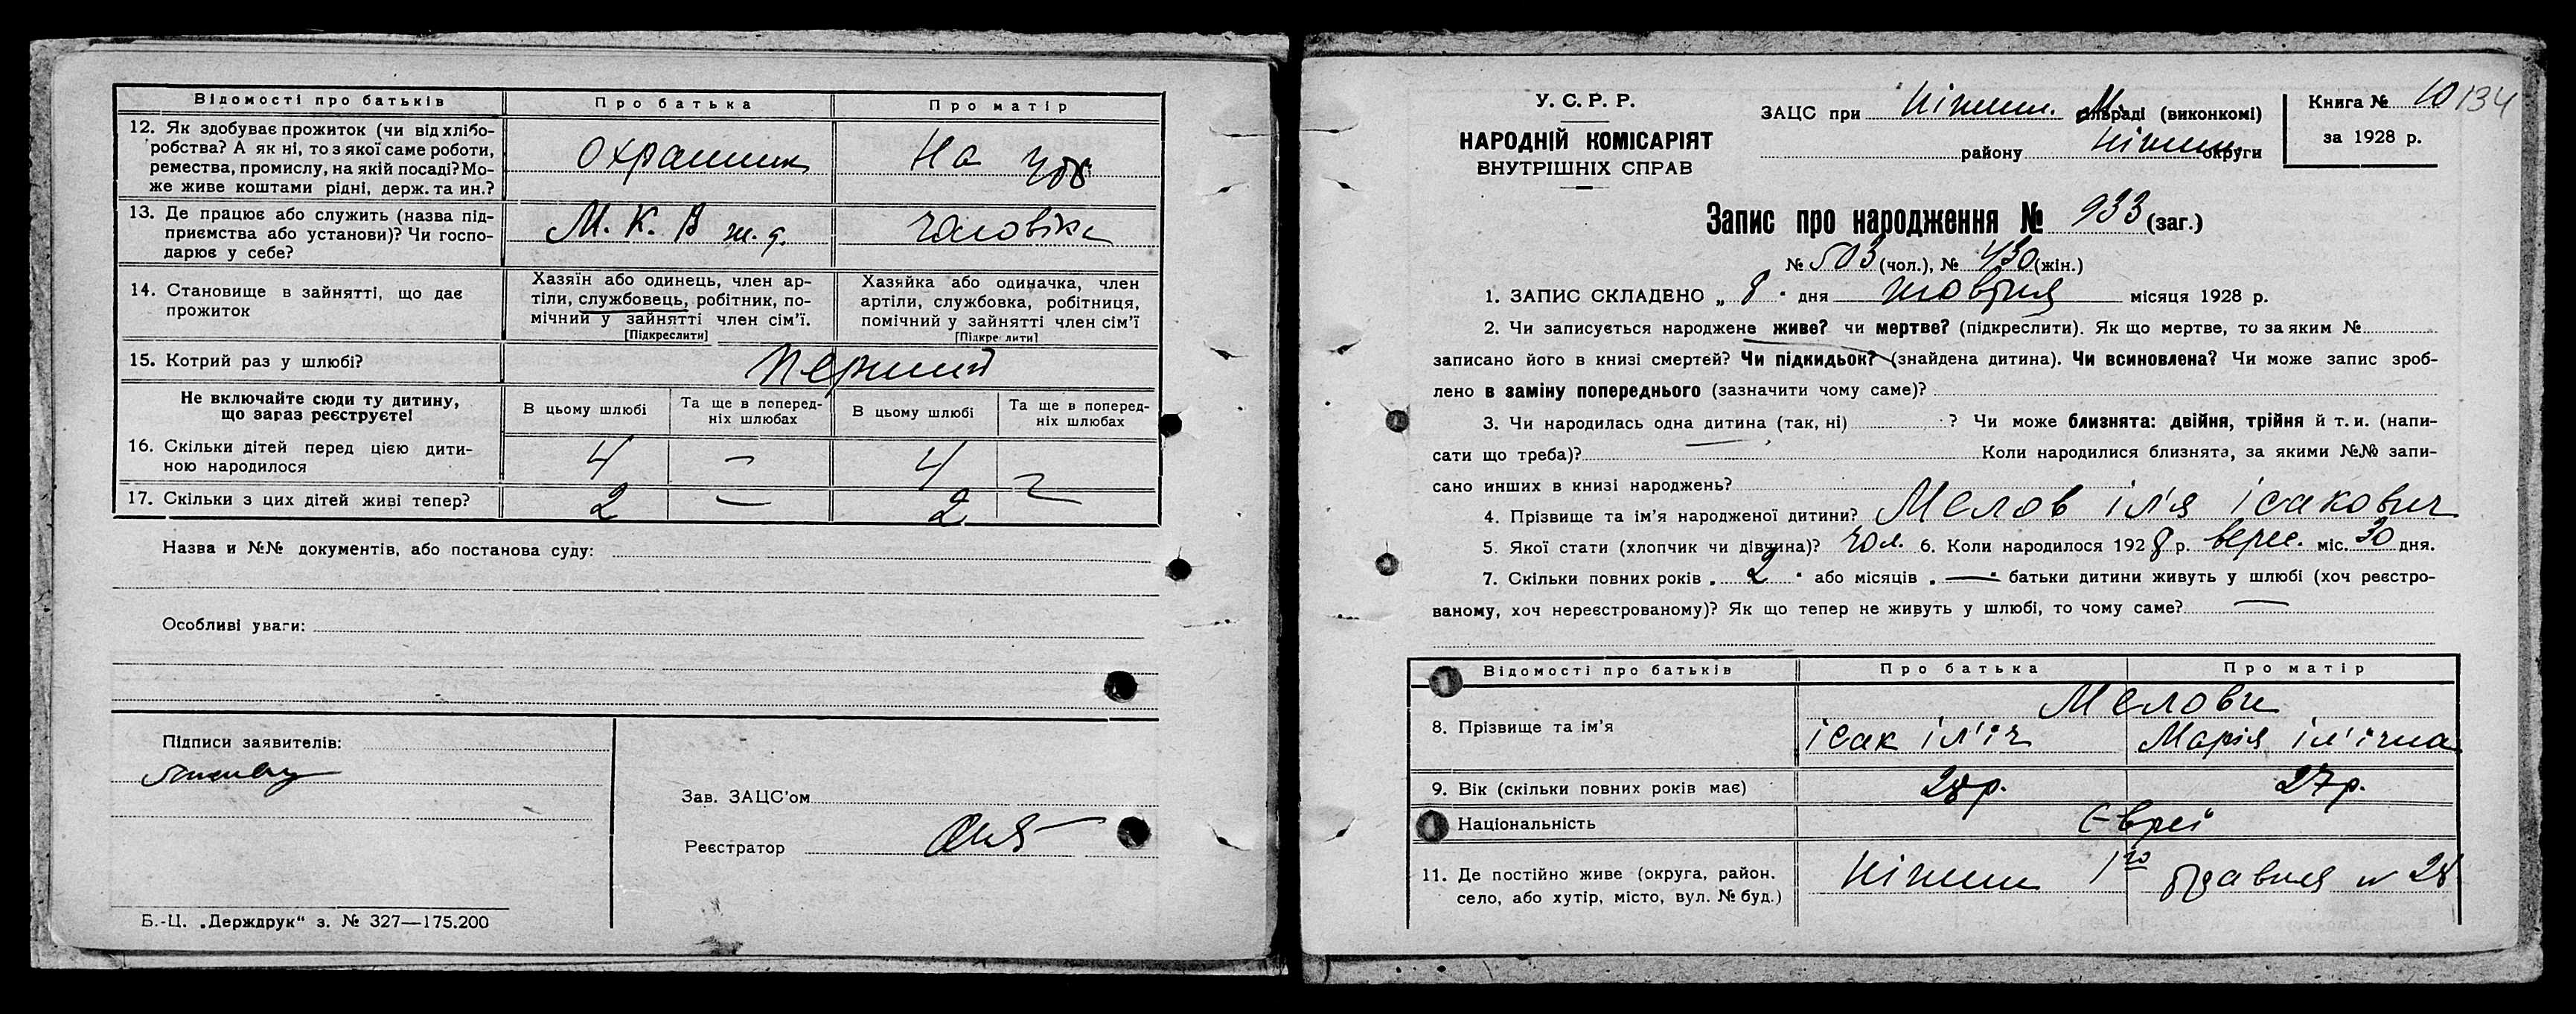 Відомості про батьків Про батька Про матір
12. Як здобуває прожиток (чи від хлібо-
робства? А як ні, то з якої саме роботи,
ремества, промислу, на якій посаді? Мо-
же живе коштами рідні, держ. та ин.?
Охранник На
13. Де працює або служить (назва під-
приємства або установи)? Чи госпо-
дарює у себе?
М. К. В ж. д. чоловіка
14. Становище в зайнятті, що дає
прожиток
Хазяїн або одинець, член ар-
тіли, службовець, робітник, по-
мічний у зайнятті член сім'ї.
[Підкреслити]
Хазяйка або одиначка, член
артіли, службовка, робітниця,
помічний у зайнятті член сім'ї
[Підкре лити]
15. Котрий раз у шлюбі? Перший
Не включайте сюди ту дитину,
що зараз реєструєте!
В цьому шлюбі Та ще в поперед-
ніх шлюбах В цьому шлюбі Та ще в поперед-
ніх шлюбах
16. Скільки дітей перед цією дити-
ною народилося 4 — 4 —
17. Скільки з цих дітей живі тепер? 2 — 2
Назва и №№ документів, або постанова суду:
Особливі уваги:
Підписи заявителів:
Зав. ЗАЦС'ом
Реєстратор
Б.-Ц. „Держдрук" з. № 327—175.200
У. С. Р. Р.
НАРОДНІЙ КОМІСАРІЯТ
ВНУТРІШНІХ СПРАВ
ЗАЦС при Ніжин. М. раді (виконкомі)
району Ніжин. округи
Книга № 10 134
за 1928 р.
Запис про народження № 933 (заг.)
№ 503 (чол.), № 430 (жін.)
1. ЗАПИС СКЛАДЕНО „ 8 " дня жовтня місяця 1928 р.
2. Чи записується народжене живе? чи мертве? (підкреслити). Як що мертве, то за яким №
записано його в книзі смертей? Чи підкидьок? (знайдена дитина). Чи всиновлена? Чи може запис зроб-
лено в заміну попереднього (зазначити чому саме)?
3. Чи народилась одна дитина (так, ні) ? Чи може близнята: двійня, трійня й т. и. (напи-
сати що треба)? Коли народилися близнята, за якими №№ запи-
сано инших в книзі народжень?
4. Прізвище та ім'я народженої дитини? Мелов Ілʼя Ісакович
5. Якої стати (хлопчик чи дівчина)? чол. 6. Коли народилося 1928 р. верес. міс. 30 дня.
7. Скільки повних років „ 2 " або місяців „ — " батьки дитини живуть у шлюбі (хоч реєстро-
ваному, хоч нереєстрованому)? Як що тепер не живуть у шлюбі, то чому саме? —
Відомості про батьків Про батька Про матір
8. Прізвище та ім'я
Мелови
Ісак Іл'іч Марія Іл'їчна
9. Вік (скільки повних років має) 28 р. 27 р.
Національність Євреї
11. Де постійно живе (округа, район.
село, або хутір, місто, вул. № буд.)
Ніжин 1го травня № 28